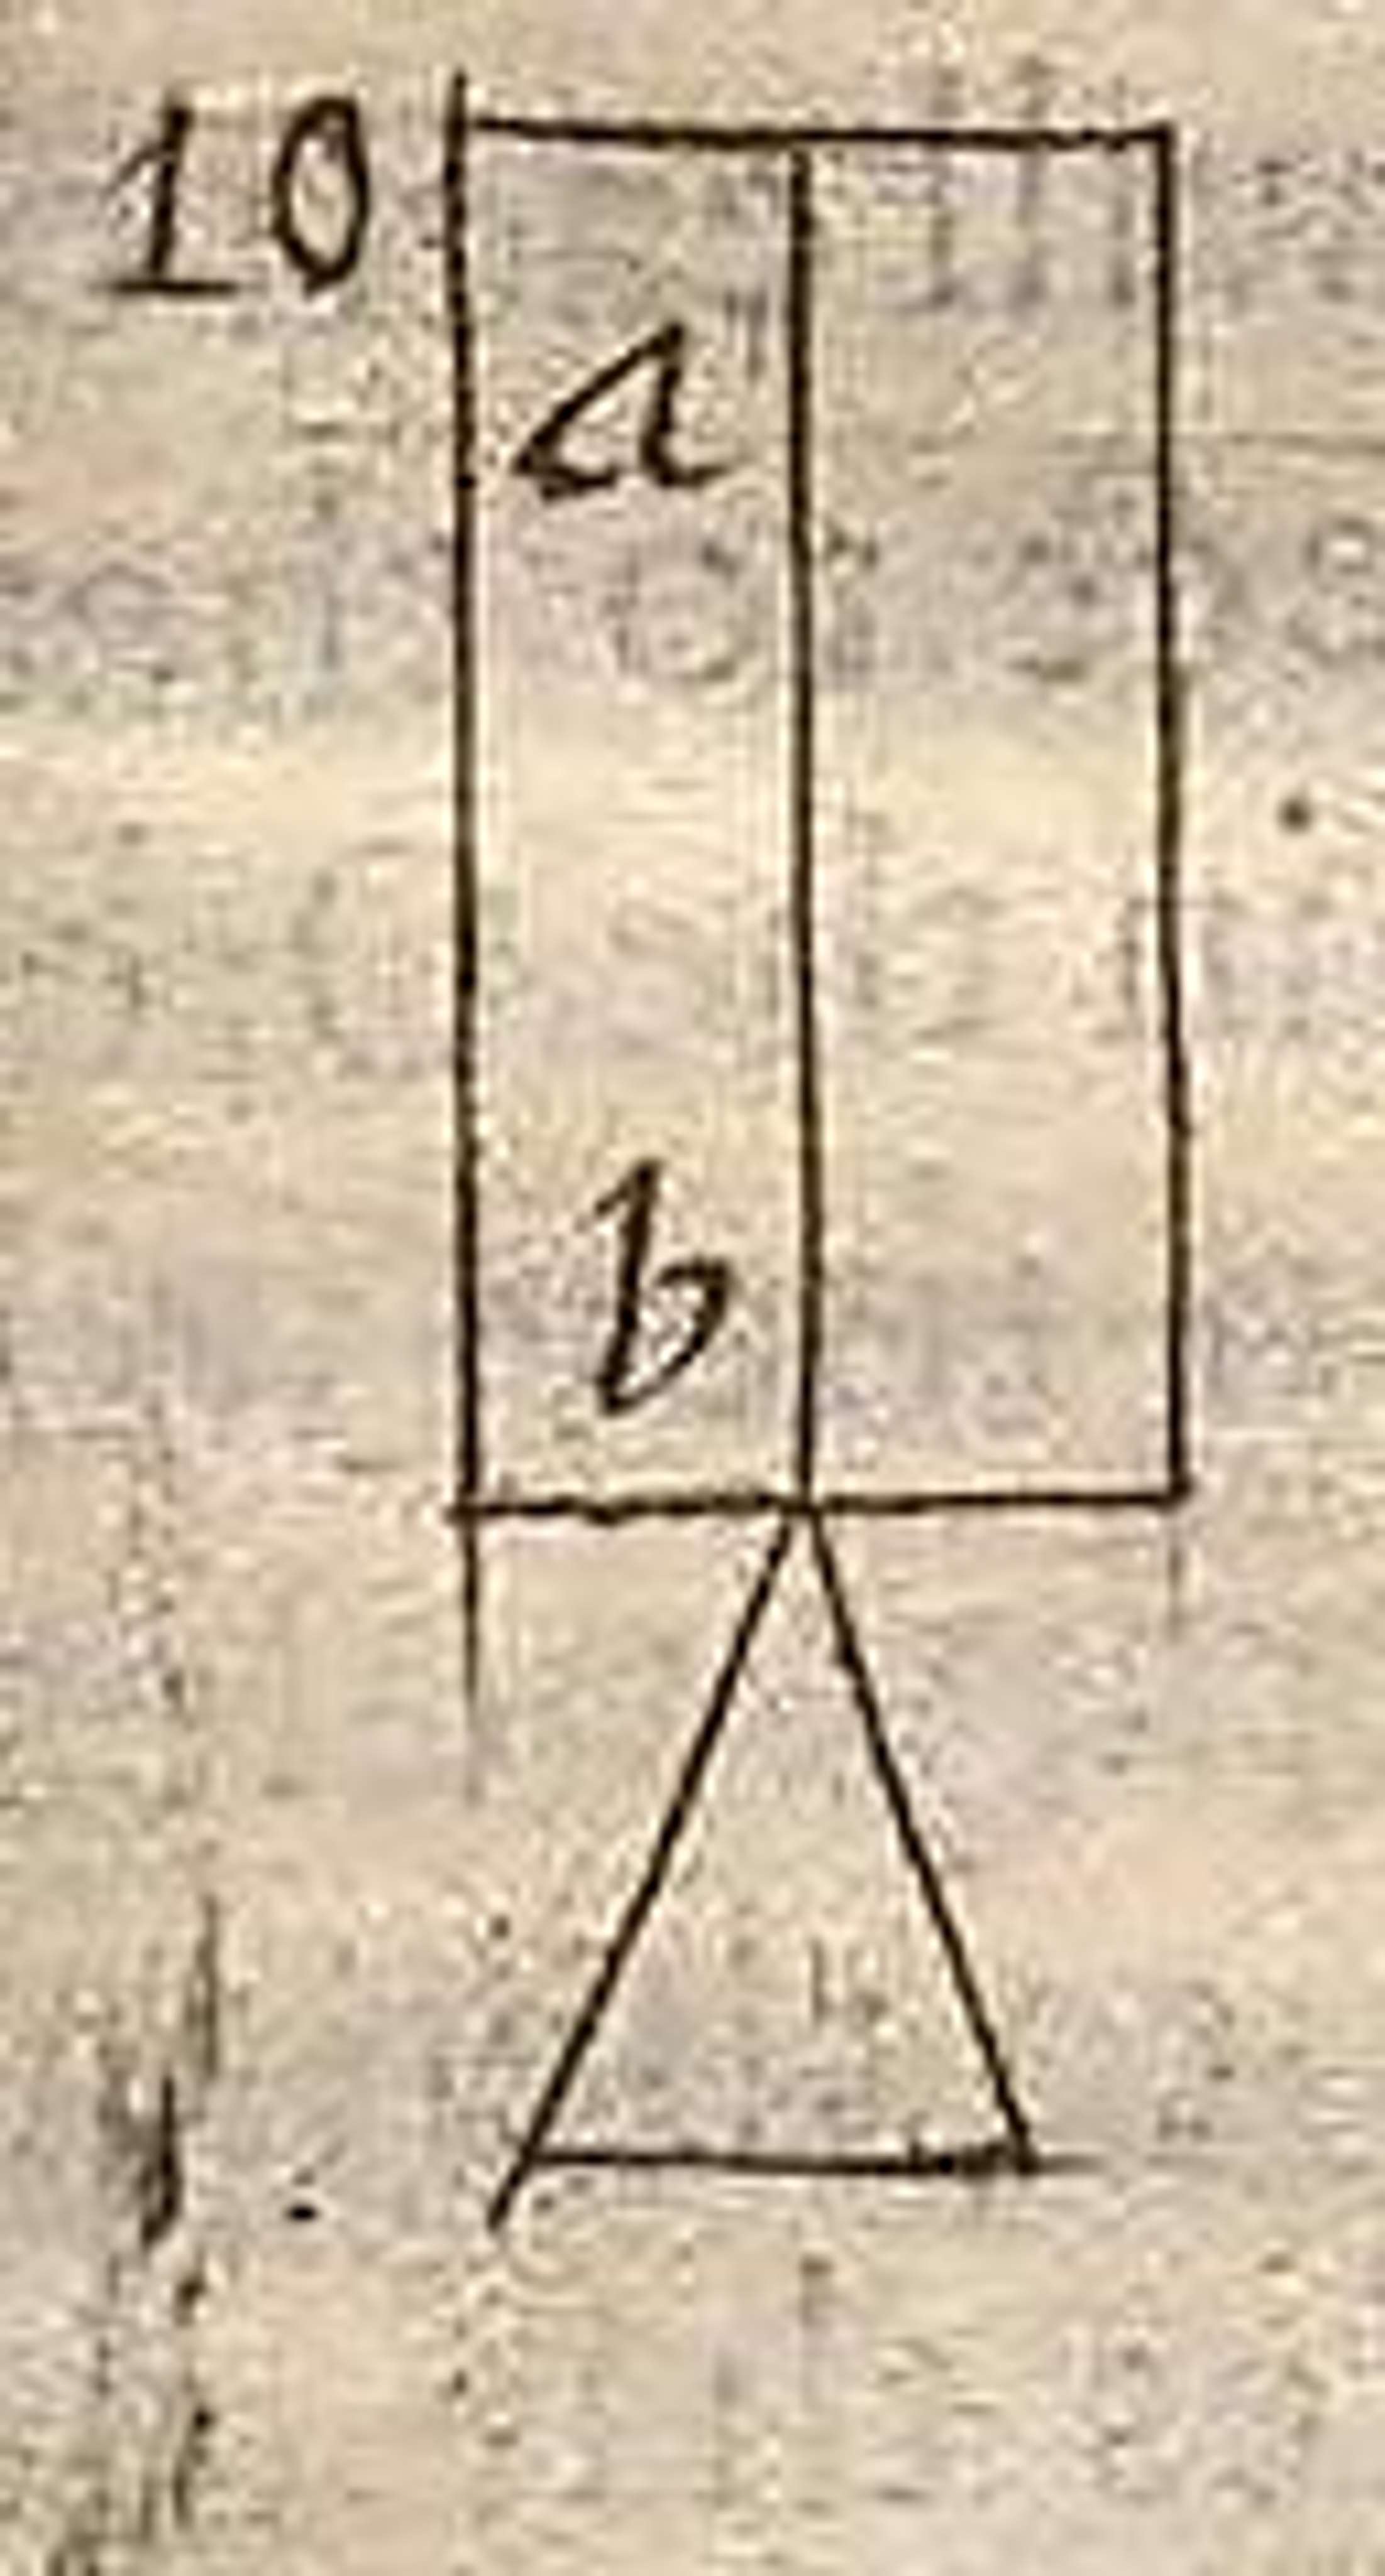 10
a
b